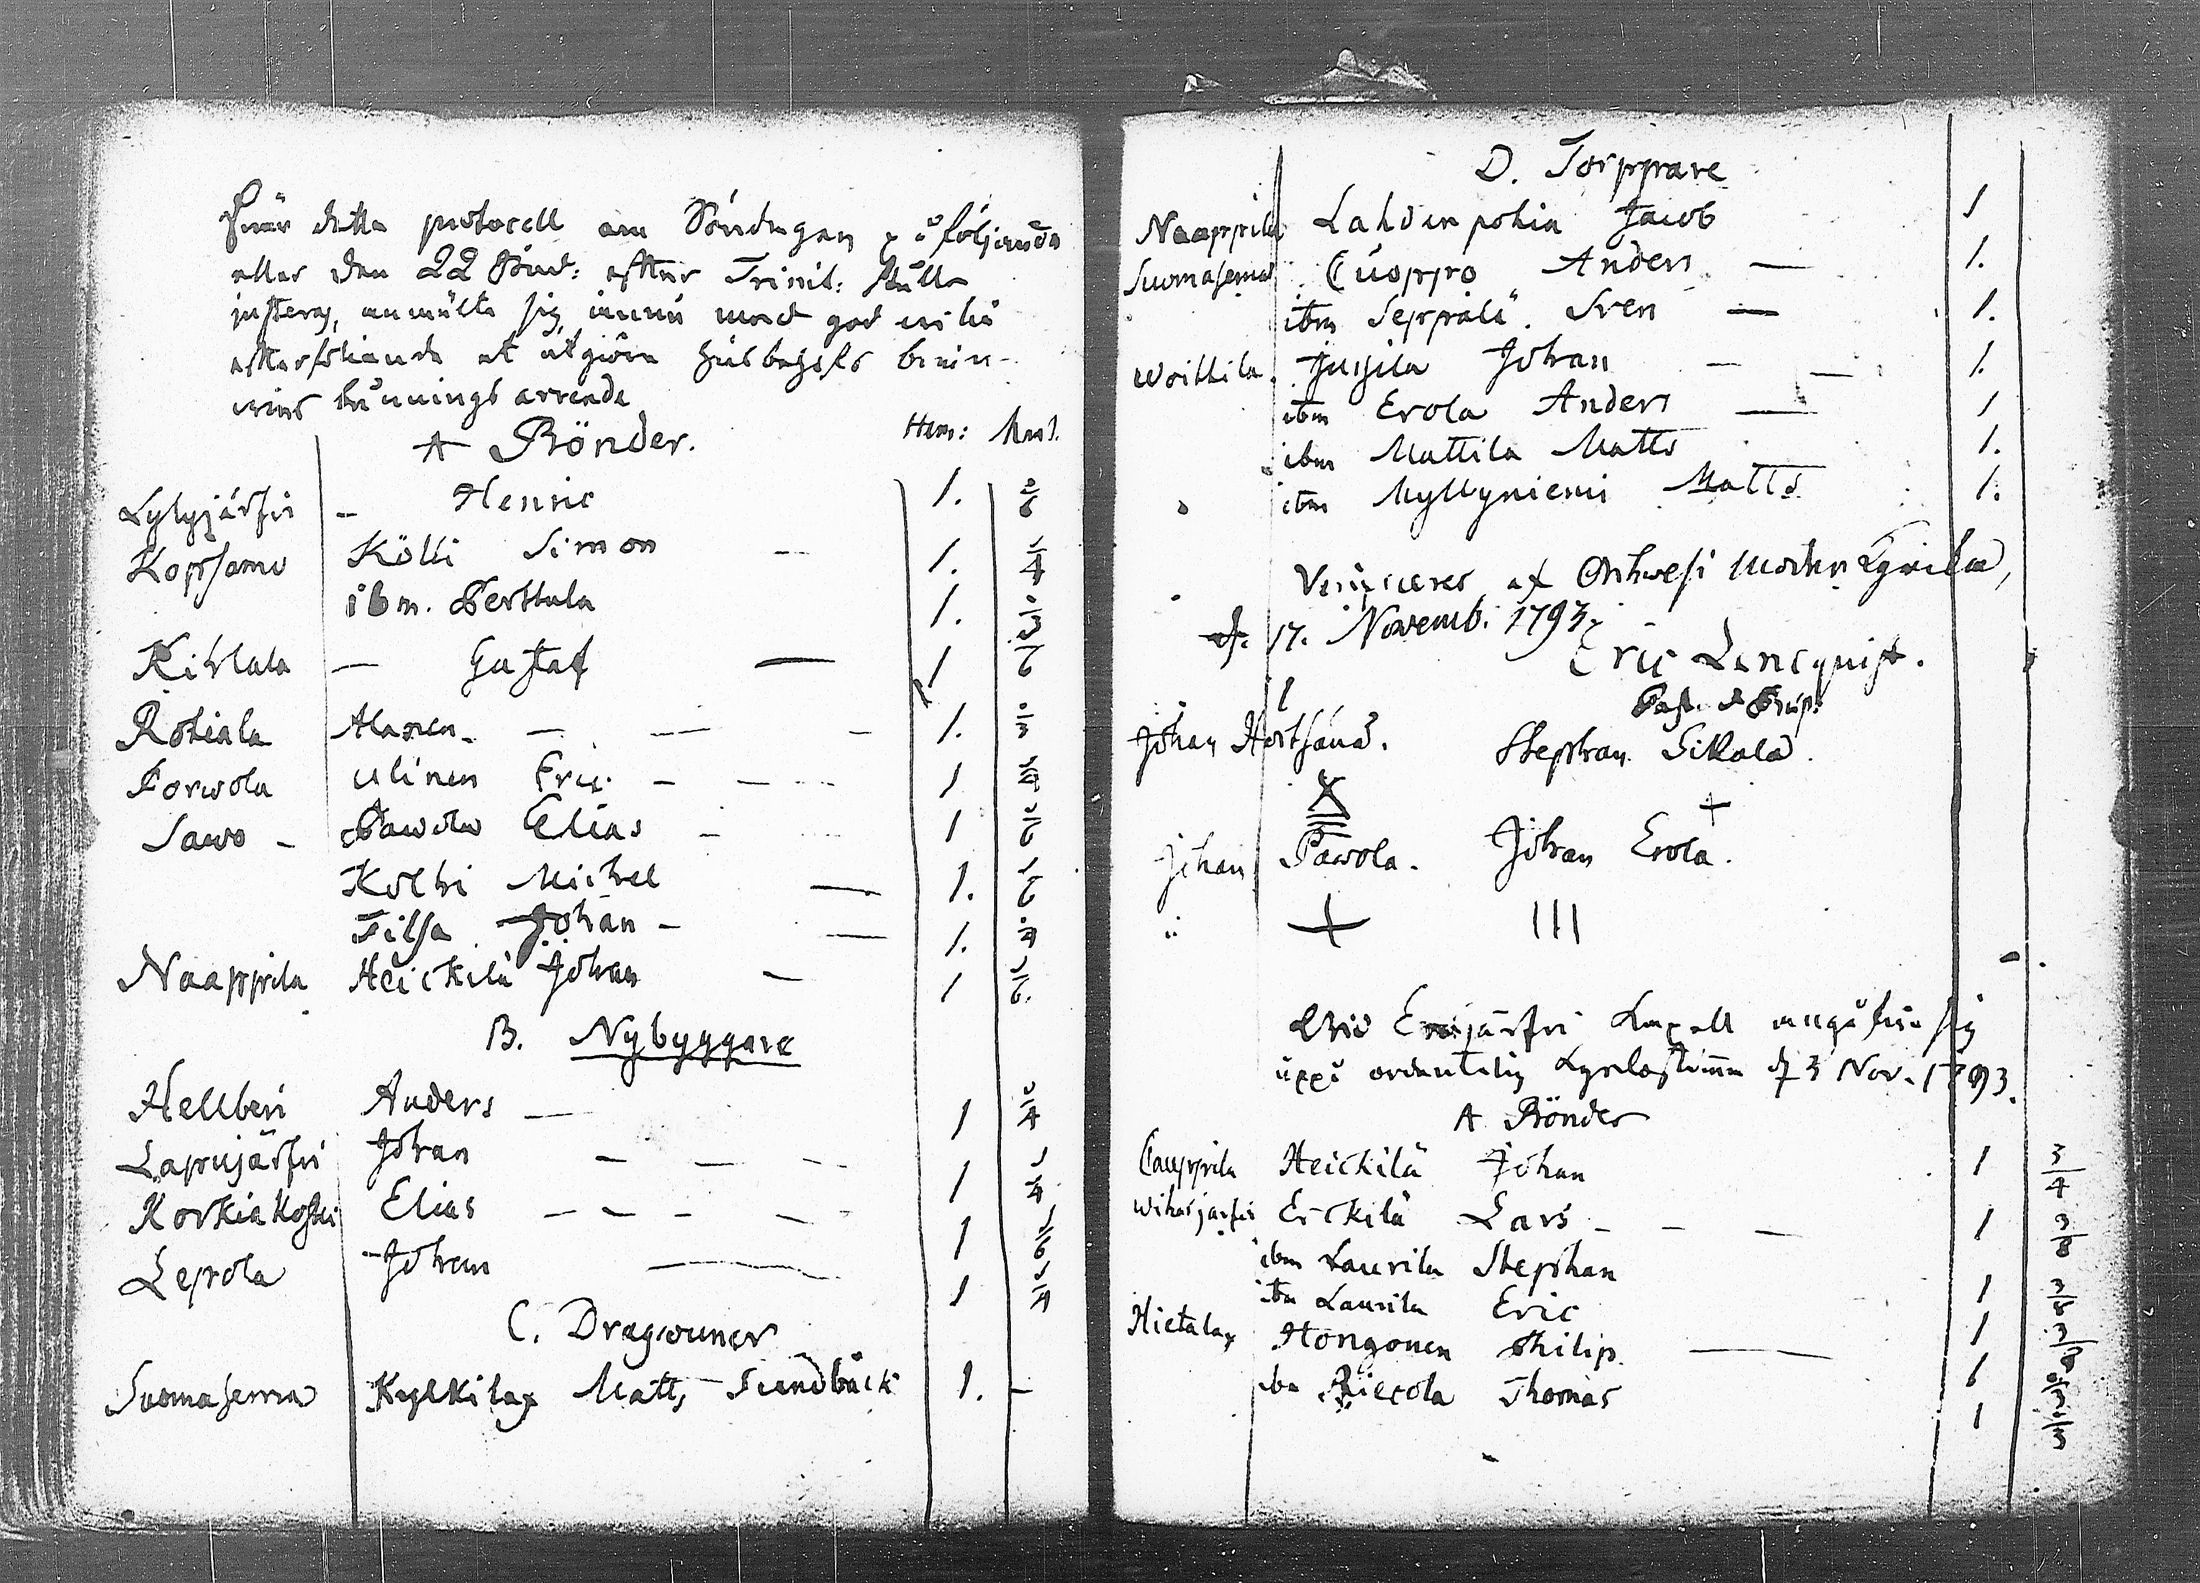 När detta protocoll om Söndagen på följande
eller den 22 Sönd: efter Trinit: skulle
justeras, anmälte sig ännu med god vilja
efterföljande at utgöra husbehofs brän-
vins bränningss arrende
A Bönder. Hem: Mtl.
Lylyjärfvi - Henric 1.
Kopsamo Kölli Simon - 1.
ibm. Perttula 1.
Kihlala - Gustaf - 1
Rohiala Alanen - - - - 1.
Porwola Ulinen Eric - - - 1
Sawo - Pawola Elias - 1
Kolhi Michel - 1.
Tilsa Johan - - 1.
Naappila Heickilä Johan - 1
B. Nybyggare
Hellberi Anders - 1
Lapujärfvi Johan - - - 1
Korkiakoski Elias - - - - 1
Lepola Johan - 1
C. Dragouner
Suomasema Kylkilax Matts Sundbäck 1. -
D. Torppare
Naappila Lahdenpohia Jacob 1
Suomasema Cuoppo Anders - 1.
ibm Seppälä. Sven - 1.
Woittila. Jussila Johan - - 1.
ibm Erola Anders - 1
ibm Mattila Matts 1.
ibm Myllyniemi Matts 1.
Verificeres af Orihwesi Moder Kyrka,
d. 17. Novemb. 1793.
Eric Lencquist.
Past. & Præp.
Johan Hortsana. Stephan Sikala.
Johan Pawola. Johan Erola.
+ III
Wid Eräjärfvi Kapell angåfvo sig
uppå ordentelig Kyrkostämma d 3 Nov. 1793.
A Bönder
Cauppila Heickilä Johan 1 3/4
Wihasjärfvi Erckilä Lars - - - 1
ibm Laurila Stephan 1
ibm Laurila Eric 1
Hietalax Hongonen Philip - 1
ibm Piecola Thomas 1